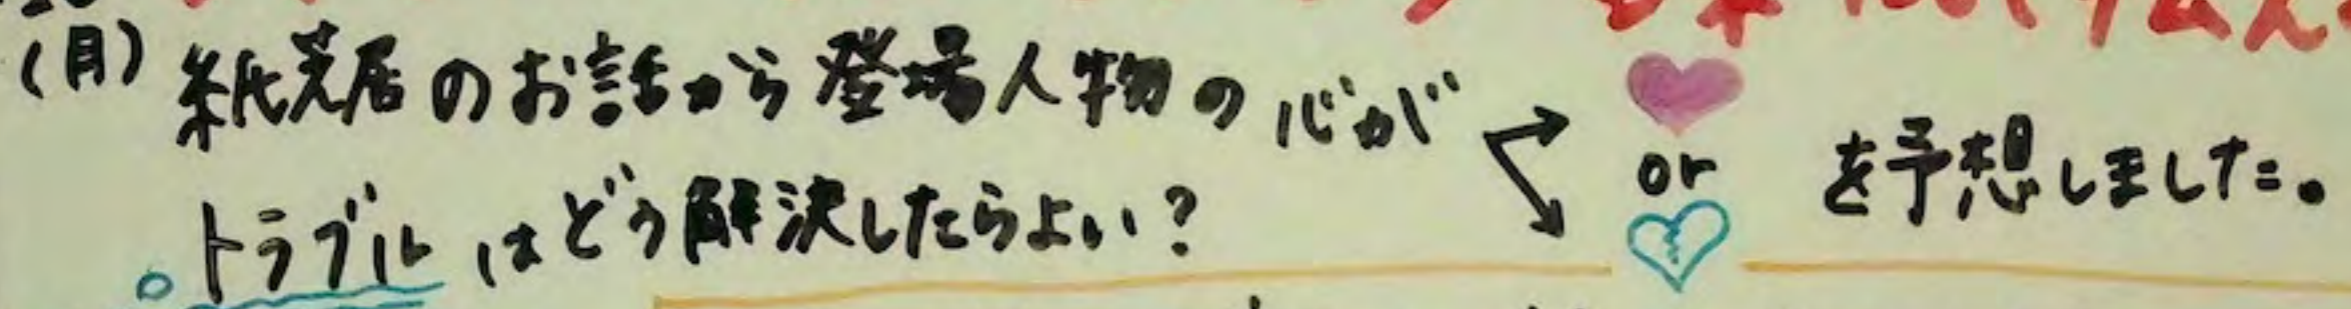 (月) 紙芝居のお話から登場人物の心が
or
を予想しました。
トラブルはどう解決したらよい？